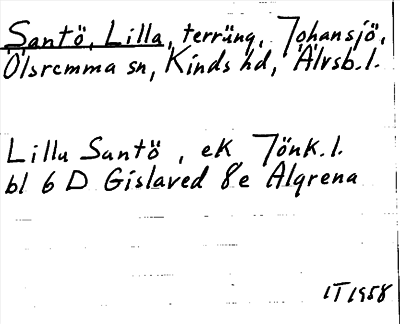 Santö, Lilla, terräng, Johansjö,
Ölsremma sn, Kinds hd, Älvsb. l.
Lilla Santö, ek Jönk. l.
bl 6 D Gislaved 8e Älgrena
IT 1958